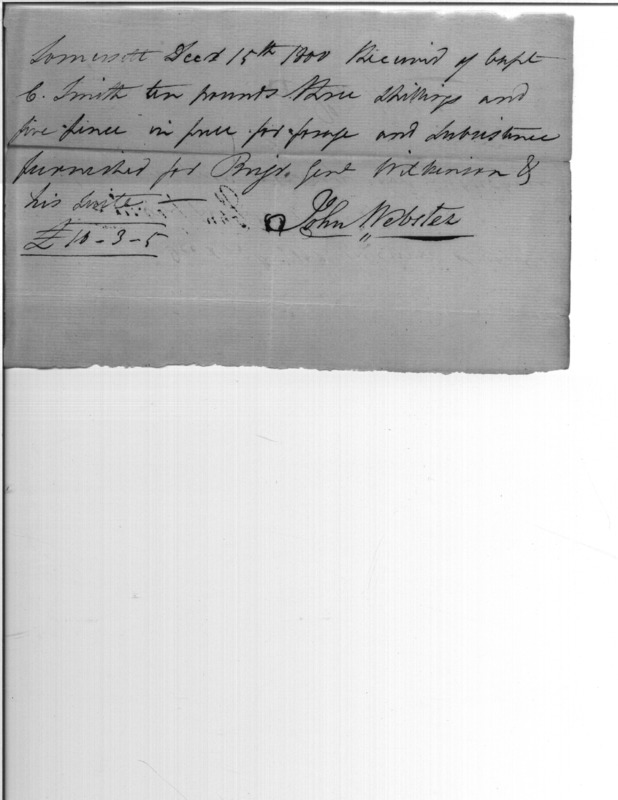 Somersett Decr 15th 1800 Received of Capt
C. Smith ten pounds three shillings and
five pence in full for forage and subsistence
furnished for Brigr. Genl Wilkinson &
his suite —
£10-3-5
John Webster